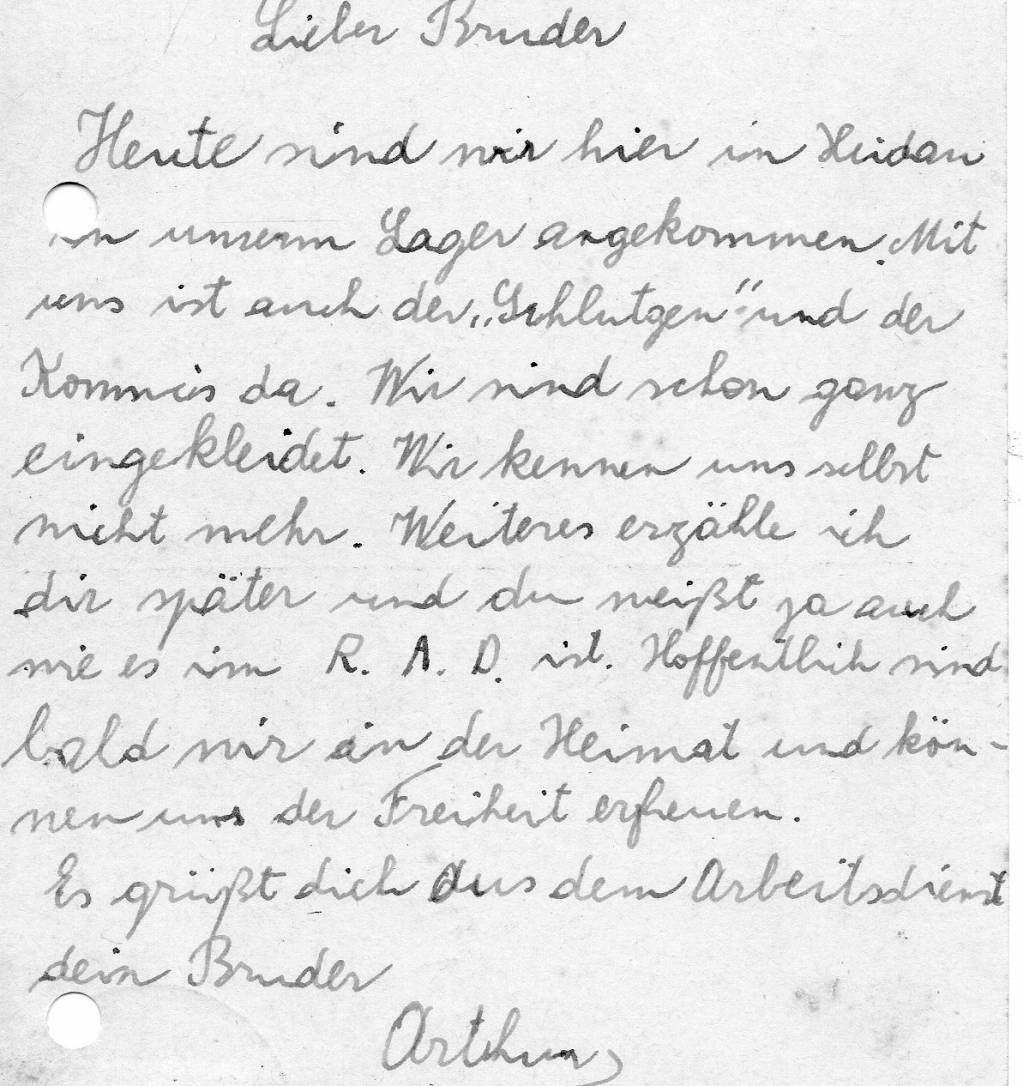 Lieber Bruder
Heute sind wir hier in Heidau
in unserm Lager angekommen. Mit
uns ist auch der „Schlutgen" und der
Kommis da. Wir sind schon ganz
eingekleidet. Wir kennen uns selbst
nicht mehr. Weiteres erzähle ich
dir später und du weißt ja auch
wie es im R. A. D. ist. Hoffentlich sind
bald wir in der Heimat und kön-
nen uns der Freiheit erfreuen.
Es grüßt dich aus dem Arbeitsdienst
dein Bruder
Arthur